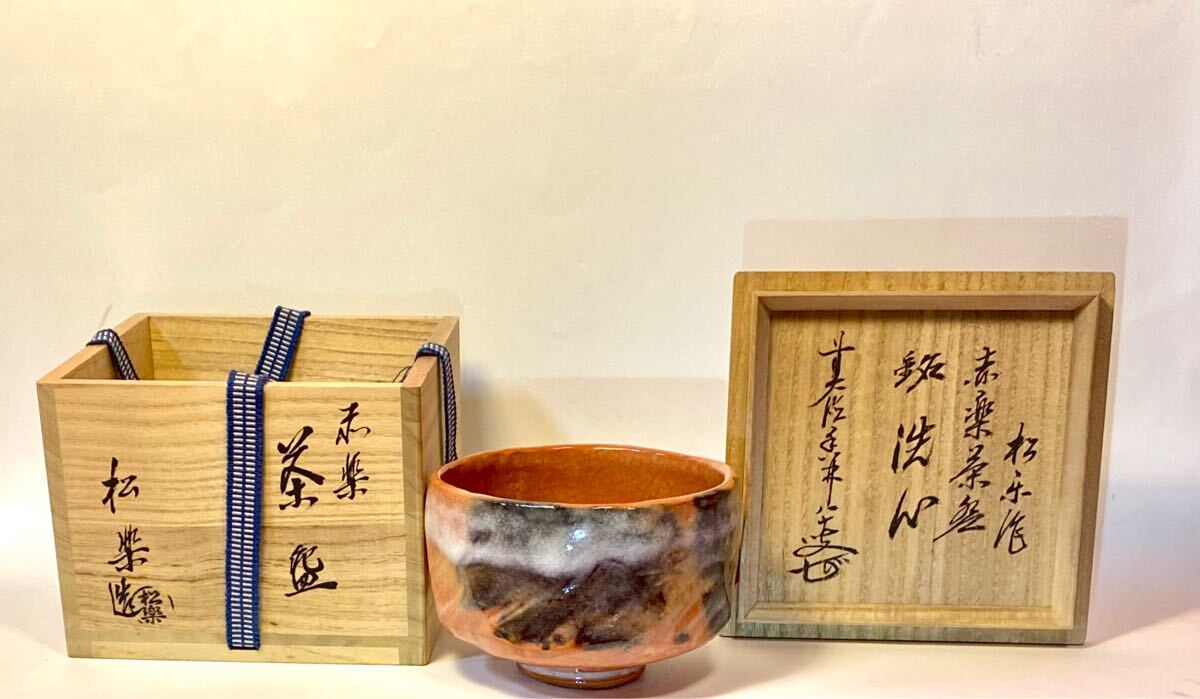 赤楽
茶盌
松楽造
松楽
松楽作
赤楽茶盌
銘 洗心